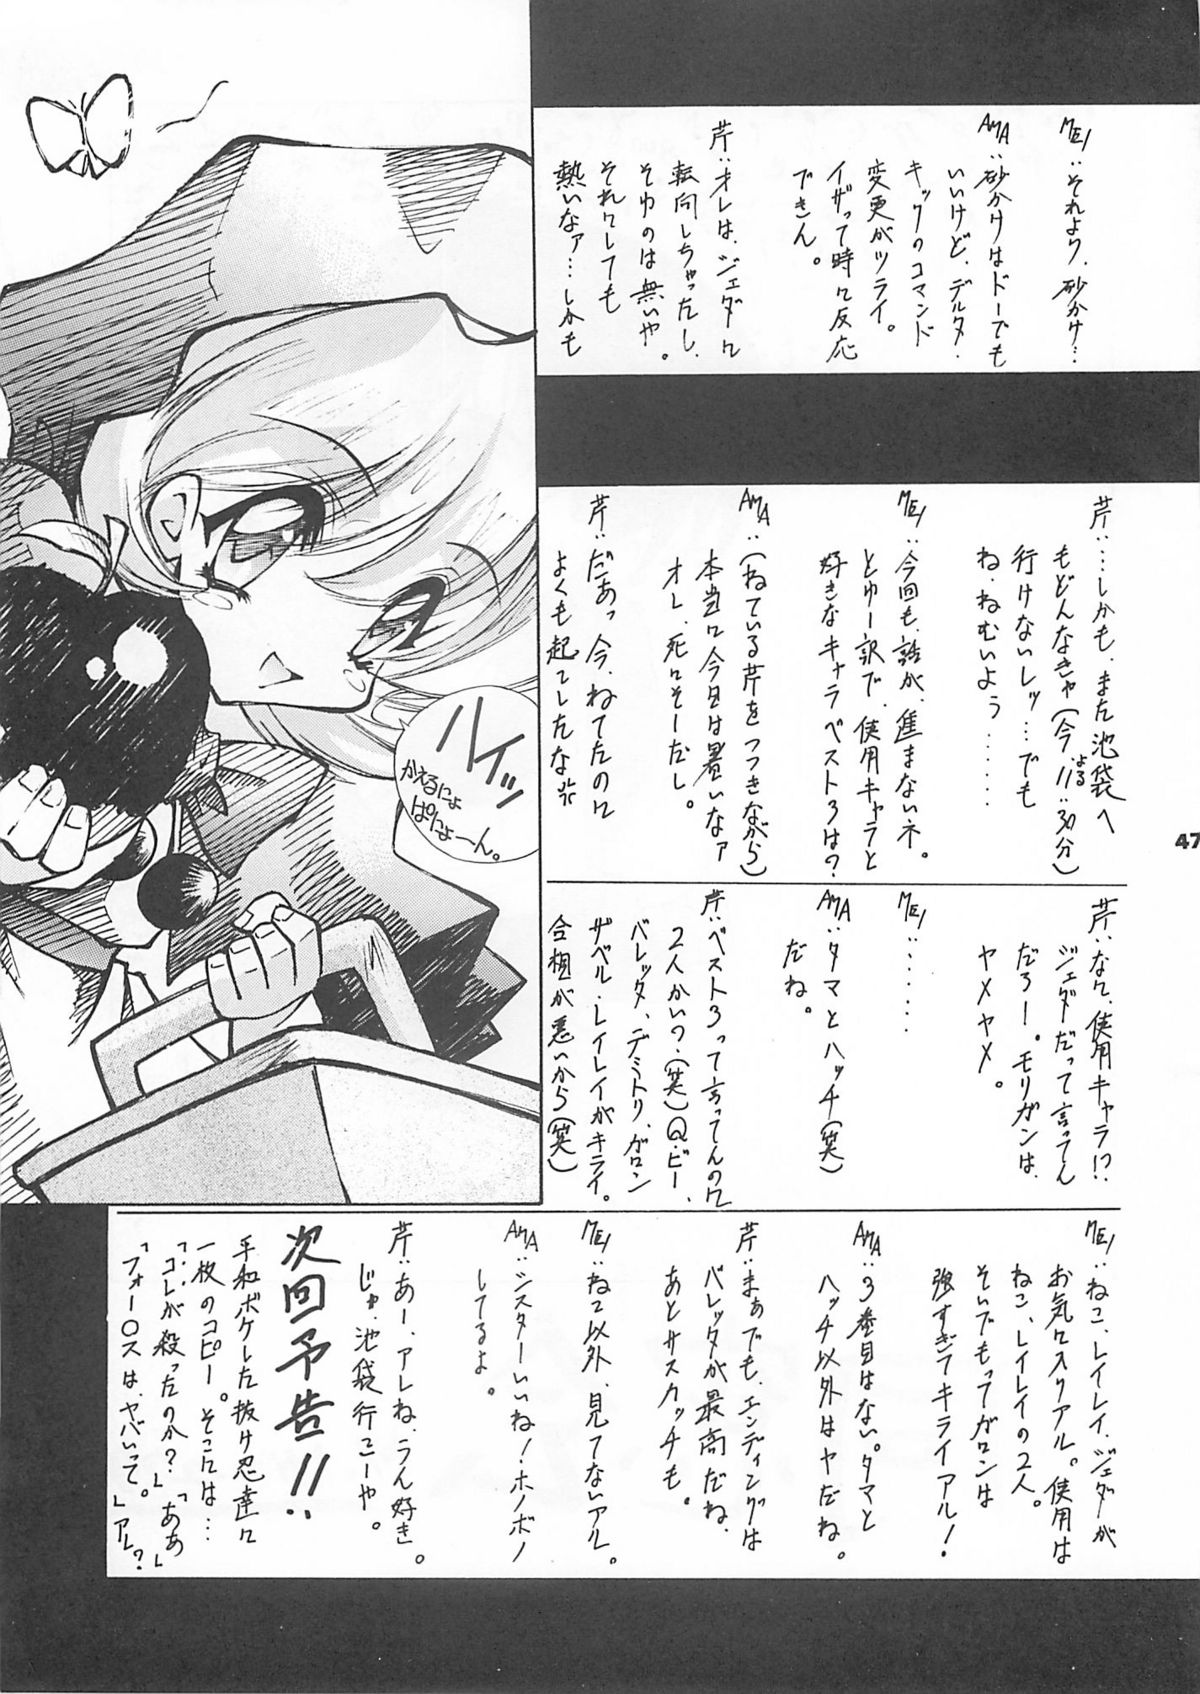 MEI：それより、砂かけ…
AMA：砂かけはドーでも
いいけど、デルタ・
キックのコマンド
変更がツライ。
イザって時に反応
できん。
芹：オレは、ジェダに
転向しちゃったし、
そゆのは無いや。
それにしても
熱いなァ…しかも
芹：…しかも、また池袋へ
もどんなきゃ（今11：30分）
よる
行けないしッ…でも
ね、ねむいよう………
MEI：今回も、話が、進まないネ。
とゆー訳で、使用キャラと
好きなキャラベスト3は？
AMA：（ねている芹をつつきながら）
本当に今日は暑いなァ
オレ、死にそーだし。
芹：だあっ今、ねてたのに
よくも起こしたな
ハイッ
かえるにょ
ぱにょーん。
47
芹：なに、使用キャラ!?
ジェダだって言ってん
だろー。モリガンは、
ヤメヤメ。
MEI：……
AMA：タマとハッチ（笑）
だね。
芹：ベスト3って言ってんのに
2人かいっ（笑）Q・ビー、
バレッタ、デミトリ、ガロン
ザベル・レイレイがキライ。
合想が悪いから（笑）
MEI：ねこ、レイレイ、ジェダが
お気に入りアル。使用は
ねこ、レイレイの2人。
そいでもってガロンは
強すぎてキライアル！
AMA：3番目はない。タマと
ハッチ以外はヤだね。
芹：まぁでも、エンディングは
バレッタが最高だね、
あとサスカッチも。
MEI：ねこ以外、見てないアル。
AMA：シスターいいね！ホノボノ
してるよ。
芹：あー、アレね、うん好き。
じゃ、池袋行こーや。
次回予告!!
平和ボケした抜け忍達に
一枚のコピー。そこには…
「コレが殺ったのか？」「ああ」
「フォー〇スは、ヤバいって。」アル？